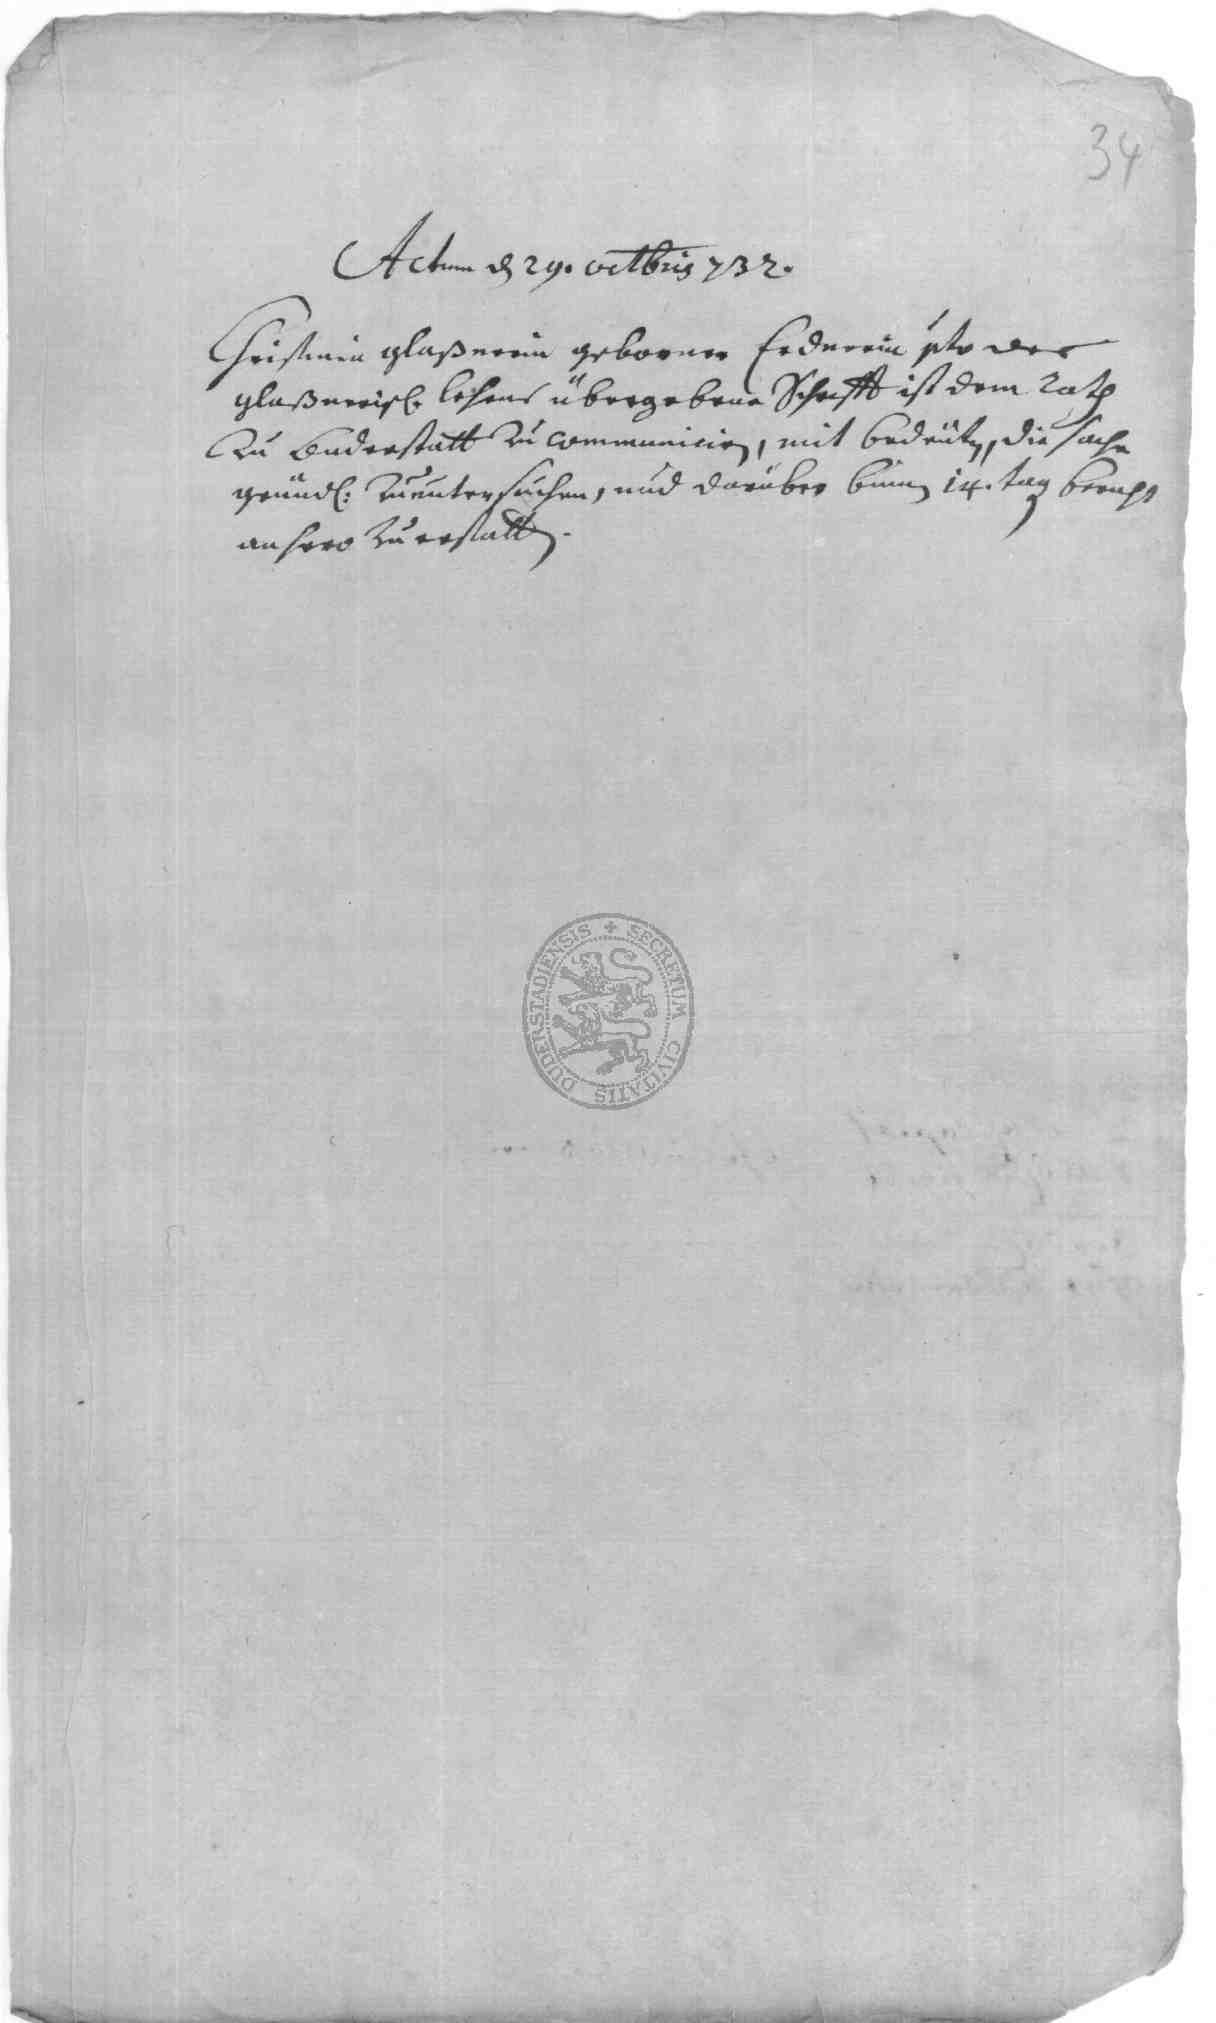 34
Actum d 29. octbris 732.
Christinen glaßnerin geborner Erdnerin pto des
glaßnerisch. lehens übergebene Schrifft ist dem Rath
zu Duderstatt zu communicirn, mit bedeuten, die sache
gründl: zu untersuchen, und darüber binnen 14. tag bericht
anhero zu erstatten.
SECRETUM CIVITATIS DUDERSTADIENSIS